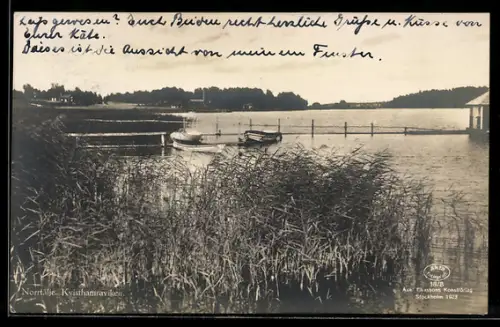 gewesen? Euch Beiden recht herzliche Grüße u. Küsse von
Eurer Käte.
Dieses ist die Aussicht von meinem Fenster.
Norrtälje. Kvisthamraviken.
Axel Eliassons Konstförlag
Stockholm 1923